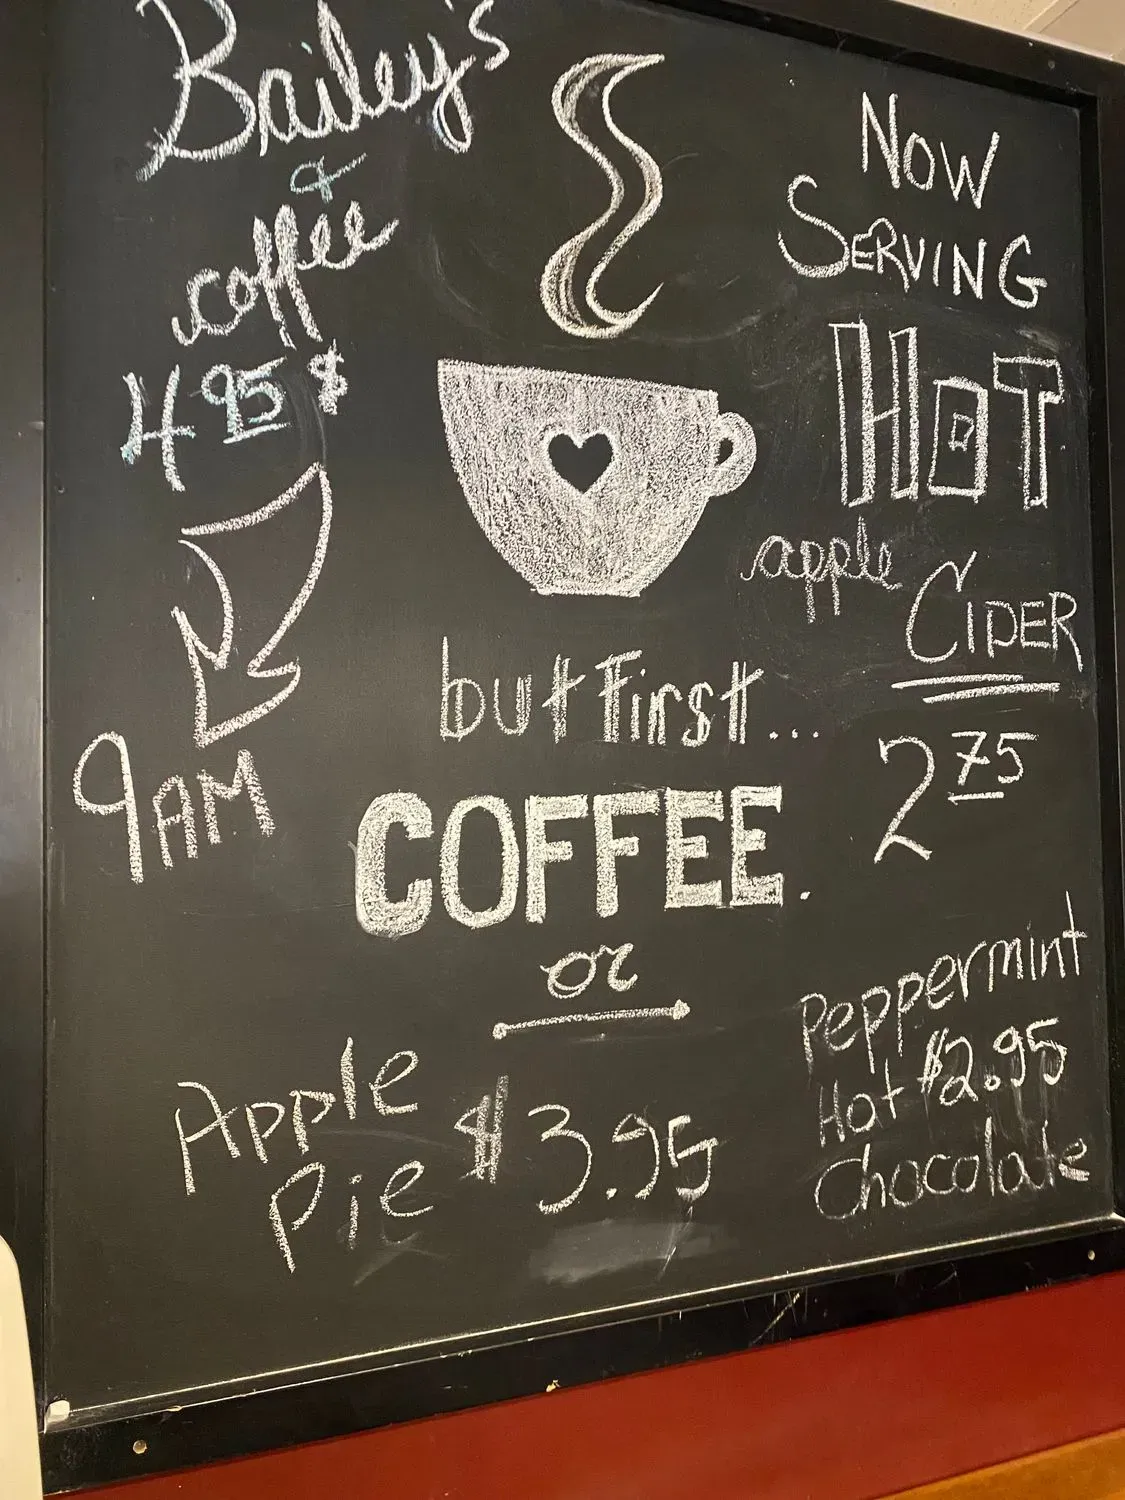 Bailey's
&
coffee
4 95 $
9AM
but first...
COFFEE.
or
Apple
Pie $3.95
Now
SERVING
HOT
apple
CIDER
2 75
Peppermint
Hot $2.95
Chocolate